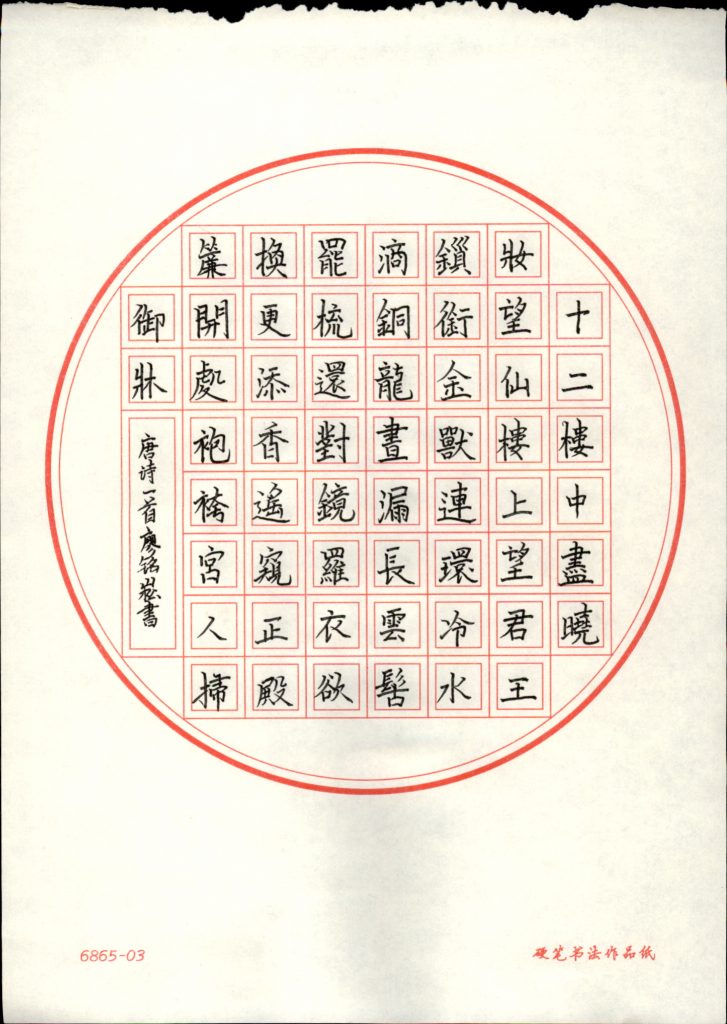 十二樓中盡曉
妝望仙樓上望君王
鎖銜金獸連環冷水
滴銅龍晝漏長雲髻
罷梳還對鏡羅衣欲
換更添香遙窺正殿
簾開處袍袴宮人掃
御牀
唐诗一首廖铭書
6865-03
硬笔书法作品纸